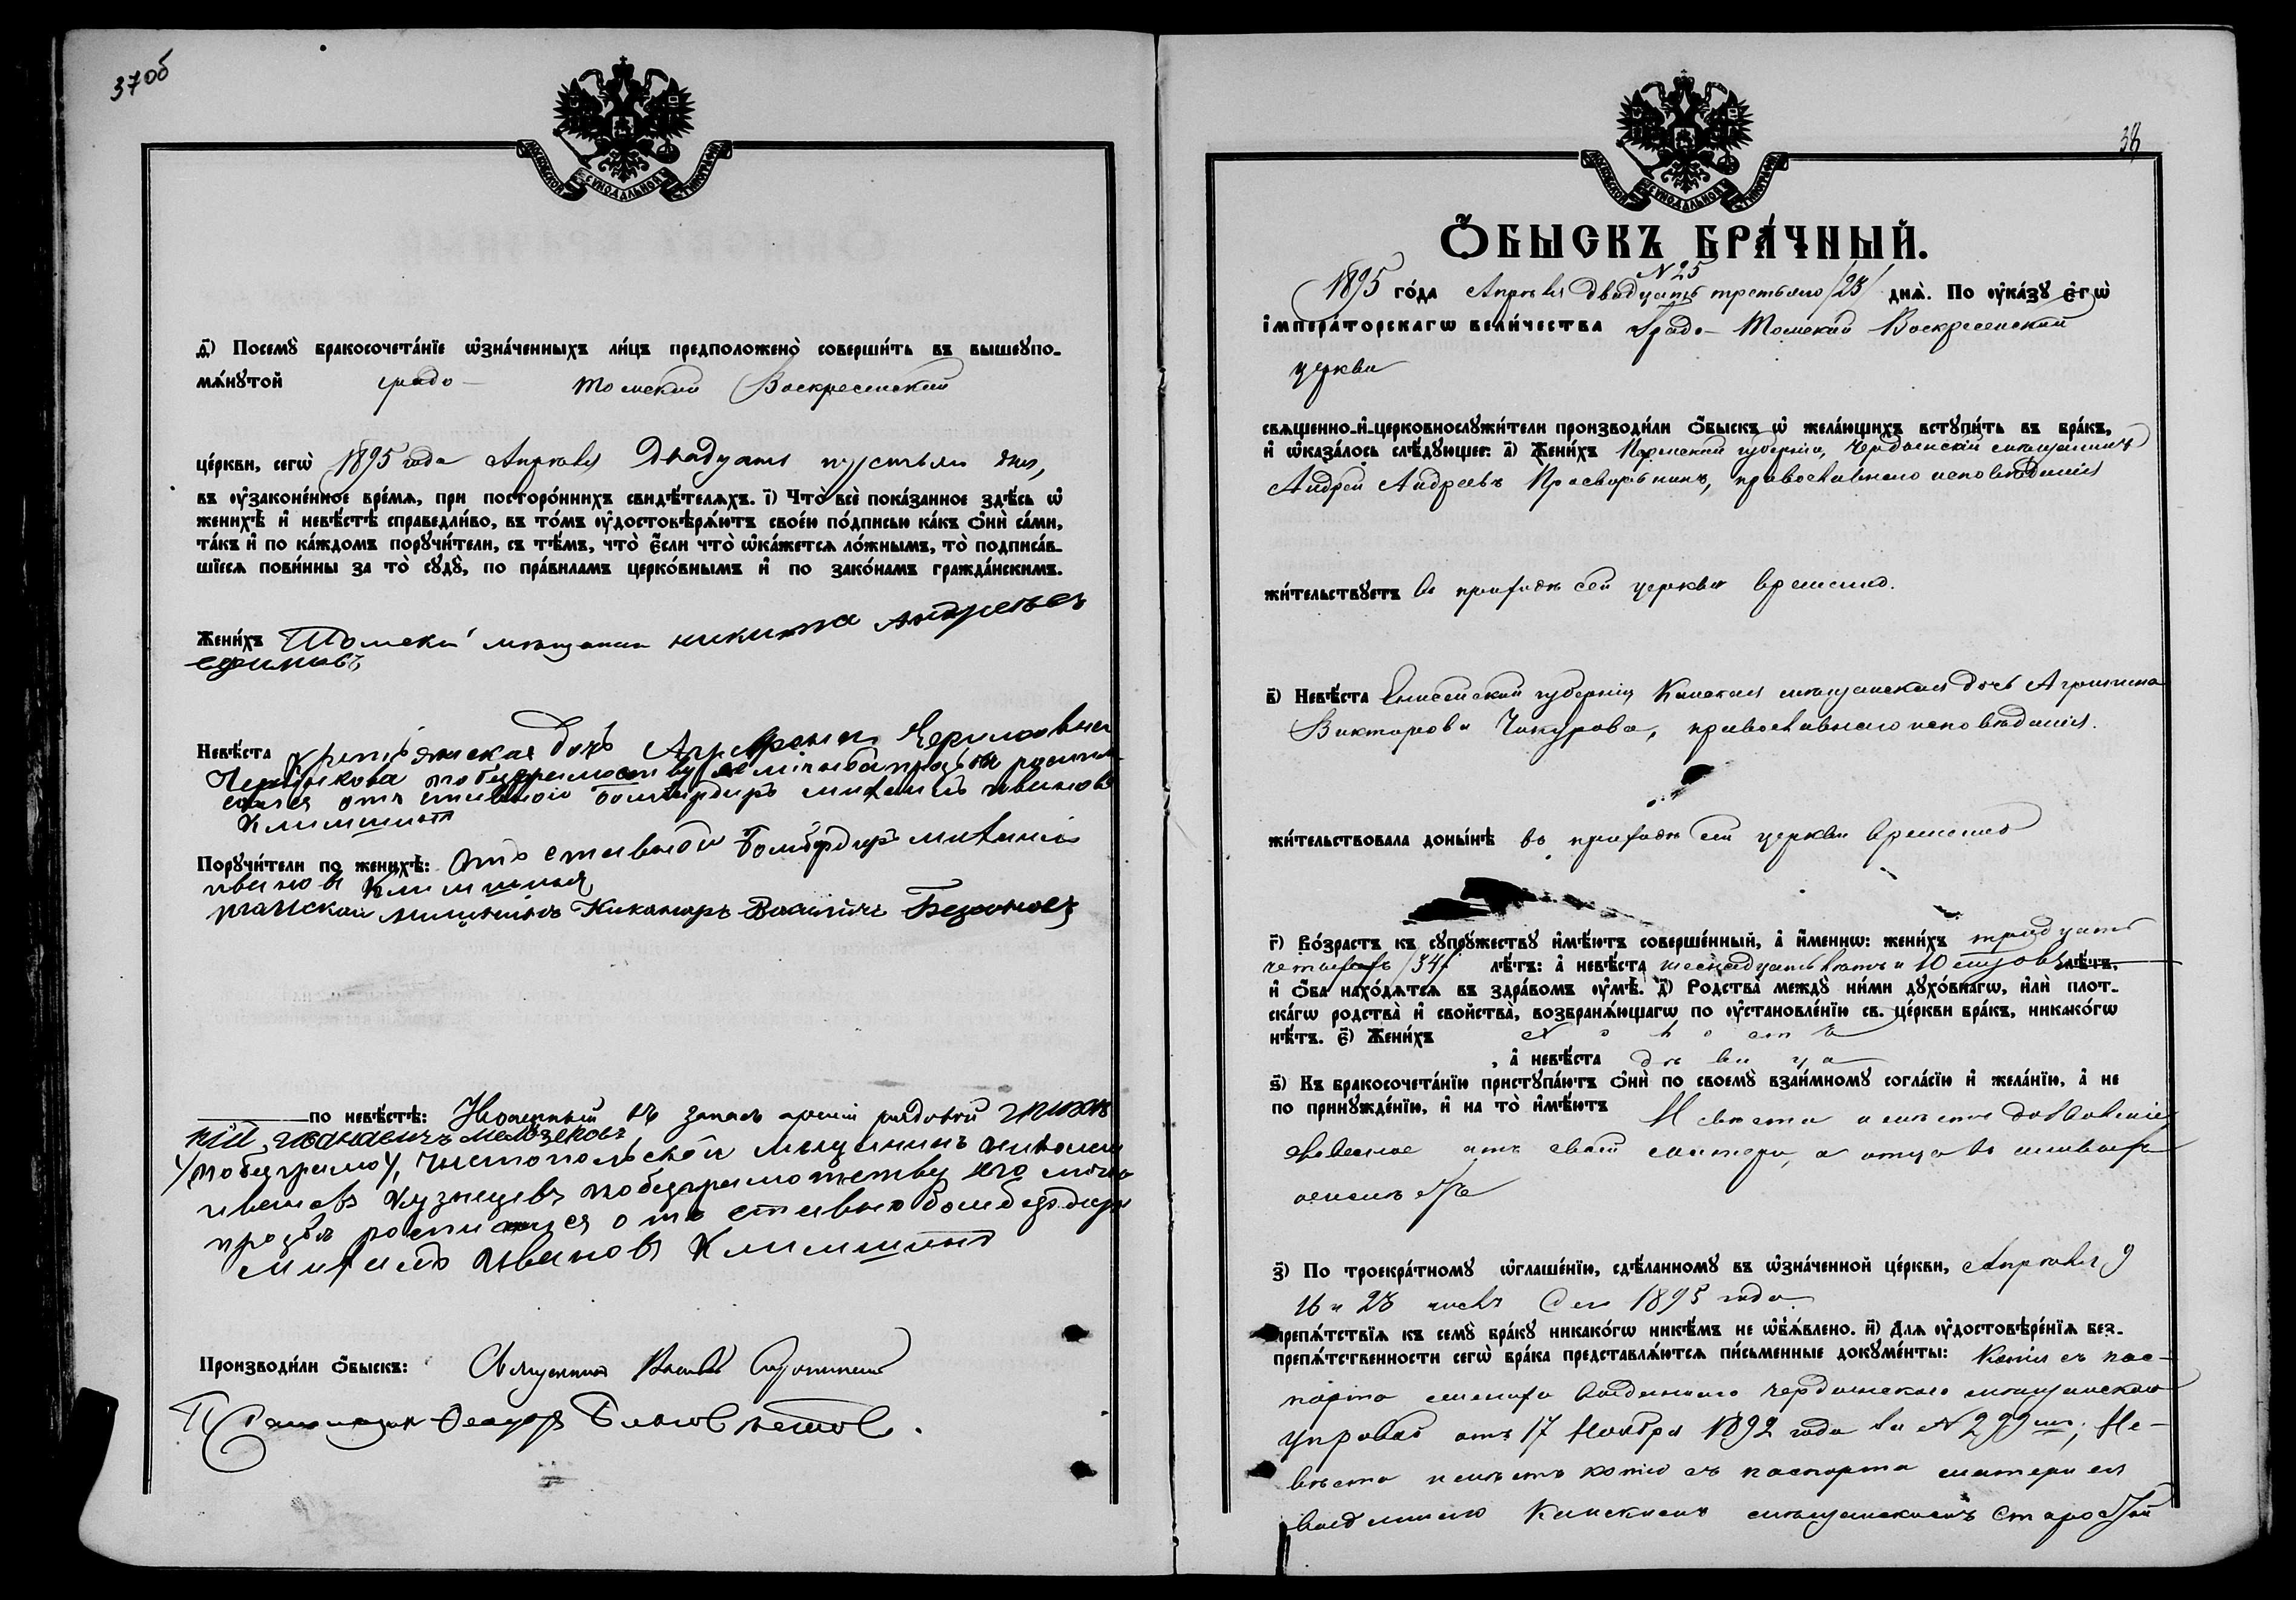 37об
МОСКОВСКОЙ СУНОДАЛЬНОЙ ТИПОГРАФІИ
д҃) Посемꙋ̀ бракосочета́нїе ѡ҆зна́ченныхъ ли́цъ предположено̀ соверши́ть въ вышеꙋпо-
мѧ́нꙋтой градо- Томской Воскресенской
це́ркви, сегѡ̀ 1895 года Апрѣля Двадцать шестого дня,
въ ᲂу҆зако́ненное вре́мѧ, при посторо́ннихъ свидѣ́телѧхъ. і҃) Что̀ всѐ пока́занное здѣ́сь ѡ҆
женихѣ̀ и҆ невѣ́стѣ справедли́во, въ то́мъ ᲂу҆достовѣрѧ́ютъ свое́ю по́дписью ка́къ ѻ҆нѝ са́ми,
та́къ и҆ по ка́ждомъ порꙋчи́тели, съ тѣ́мъ, что̀ є҆́сли что̀ ѡ҆ка́жетсѧ ло́жнымъ, то̀ подписа́в-
шїесѧ пови́нны за то̀ сꙋдꙋ̀, по пра́виламъ церко́внымъ и҆ по зако́намъ гражда́нскимъ.
Жени́хъ Томски мещанин никита андреевъ
Невѣ́ста Крестьянская дочь
отъ ставной бомбардиръ михаилъ ивановъ
Климшинъ
Порꙋчи́тели по женихѣ̀: Отъ ставной бомбардиръ михаилъ
иванов Климшинъ
мищинин Никаноръ Василичь
по невѣ́стѣ: въ запасъ арміи рядовой
чистопольской мыщанинъ
иванов Кузнецовъ по безграмотству его лично
прозбѣ росписался отъ ставной бомбардиръ
михаилъ Иванов Климшинъ
Производи́ли ѻ҆́быскъ: Священникъ
Псаломщикъ Ѳеодоръ
38
МОСКОВСКОЙ СУНОДАЛЬНОЙ ТИПОГРАФІИ
Ѻ҆́БЫСКЪ БРА́ЧНЫЙ.
N 25
1895 го́да Апрѣля двадцать третьяго /23/ днѧ̀. По ᲂу҆ка́зꙋ є҆гѡ̀
і҆мпера́торскагѡ вели́чества Градо- Томской Воскресенской
церкви
свѧще́нно-и҆-церковнослꙋжи́тели производи́ли ѻ҆́быскъ ѡ҆ жела́ющихъ встꙋпи́ть въ бра́къ,
и҆ ѡ҆каза́лось слѣ́дꙋющее: а҃) Жени́хъ Пермской губерніи, Чердынскій мѣщанинъ
Андрей Андреевъ Просвирнинъ, православнаго исповѣданія
жи́тельствꙋетъ въ приходѣ сей церкви временно.
в҃) Невѣ́ста Енисейской губерніи, Канская мѣщанская дочь Агрипина
Викторова Чипурова, православнаго исповѣданія.
жи́тельствовала донынѣ̀ въ приходѣ сей церкви временно
г҃) Во́зрастъ къ сꙋпрꙋ́жествꙋ и҆мѣ́ютъ соверше́нный, а҆ и҆́менно: жени́хъ тридцать
четырехъ /34/ лѣ́тъ: а҆ невѣ́ста шеснадцать лѣтъ и 10 мѣсяцовъ лѣ́тъ,
и҆ ѻ҆́ба нахо́дѧтсѧ въ здра́вомъ ᲂу҆мѣ̀. д҃) Родства̀ междꙋ̀ ни́ми дꙋхо́внагѡ, и҆лѝ плот-
ска́гѡ родства̀ и҆ сво́йства, возбранѧ́ющагѡ по ᲂу҆становле́нїю св. це́ркви бра́къ, никако́гѡ
нѣ́тъ. є҃) Жени́хъ холостъ
, а҆ невѣ́ста дѣвица
ѕ҃) Къ бракосочета́нїю пристꙋпа́ютъ ѻ҆нѝ по своемꙋ̀ взаи́мномꙋ согла́сїю и҆ жела́нїю, а҆ не
по принꙋжде́нїю, и҆ на то̀ и҆мѣ́ютъ Невѣста имѣетъ дозволеніе
словесное отъ своей матери, а отца въ живыхъ
не имѣетъ
з҃) По троекра́тномꙋ ѡ҆глаше́нїю, сдѣ́ланномꙋ въ ѡ҆зна́ченной це́ркви, Апрѣля 9
16 и 23 числъ сего 1895 года
препѧ́тствїѧ къ семꙋ̀ бра́кꙋ никако́гѡ никѣ́мъ не ѡ҆б̾ѧ́влено. и҃) Длѧ ᲂу҆достовѣре́нїѧ без-
препѧ́тственности сегѡ̀ бра́ка представлѧ́ютсѧ пи́сьменные докꙋме́нты: Копія съ пас-
порта жениха выданнаго Чердынскою мѣщанскою
управой отъ 17 Ноября 1892 года за N 299мъ; Не-
вѣста имѣетъ копію съ паспорта матери ея
выданнаго Канскимъ мѣщанскимъ Старостой